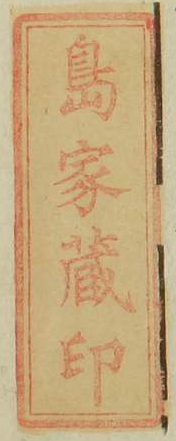 島家蔵印